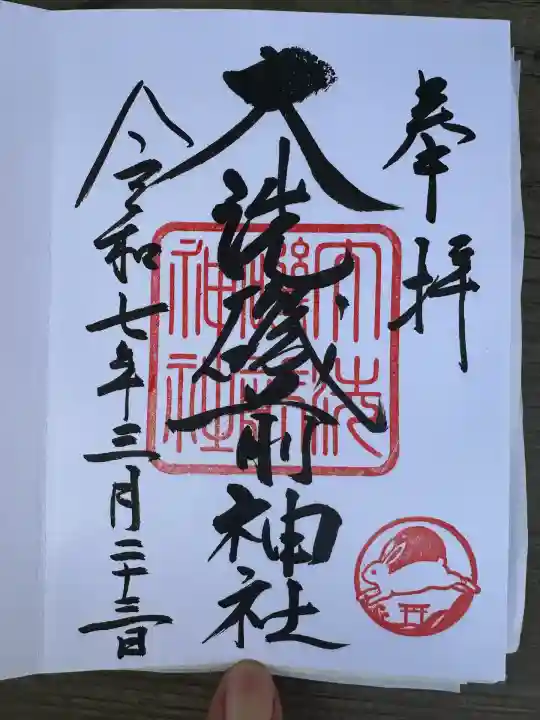 奉拝
大洗磯前神社
大洗
磯前
神社
令和七年三月二十三日